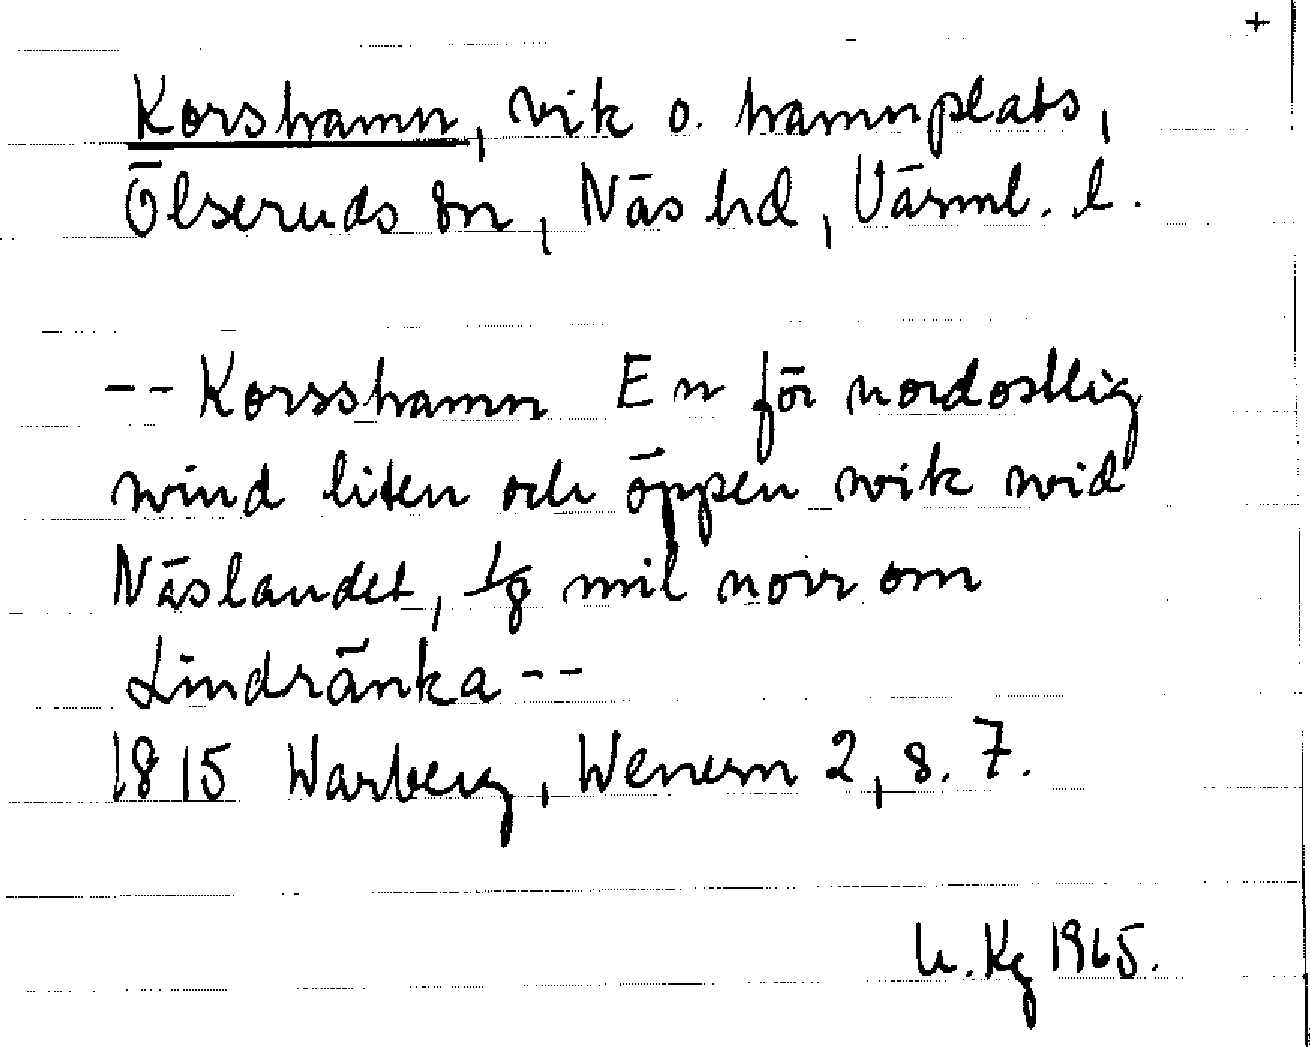 +
Korshamn, vik o. hamnplats,
Ölseruds sn, Näs hd, Värml. l.
-- Korsshamn En för nordostlig
wind liten och öppen wik wid
Näslandet, 1/8 mil norr om
Lindränka --
1815 Warberg, Wenern 2, s. 7.
U. Kg 1965.